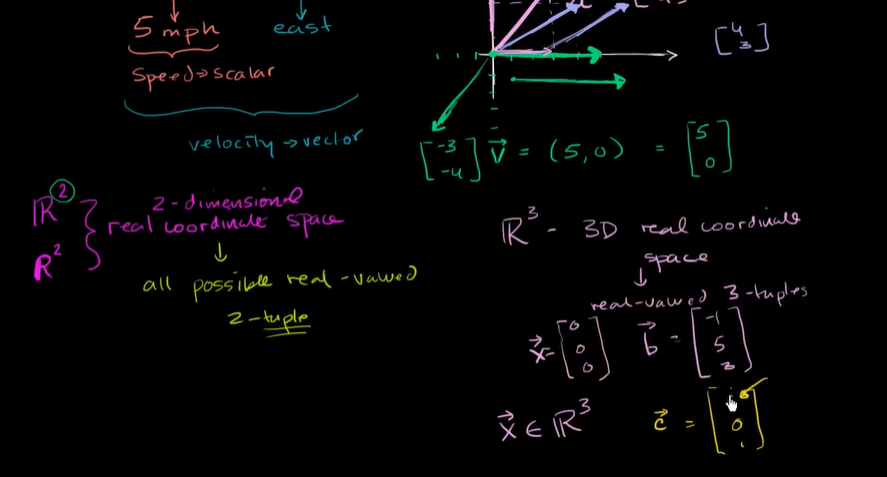 5 mph east
speed → scalar
velocity → vector
[4
3]
[-3
-4]
v⃗ = (5, 0) = [5
0]
ℝ² 2-dimensional
real coordinate space
R²
↓
all possible real-valued
2-tuple
ℝ³ - 3D real coordinate
space
↓
real-valued 3-tuples
x⃗ = [0
0
0]
b⃗ = [-1
5
3]
x⃗ ∈ ℝ³
c⃗ = [
0